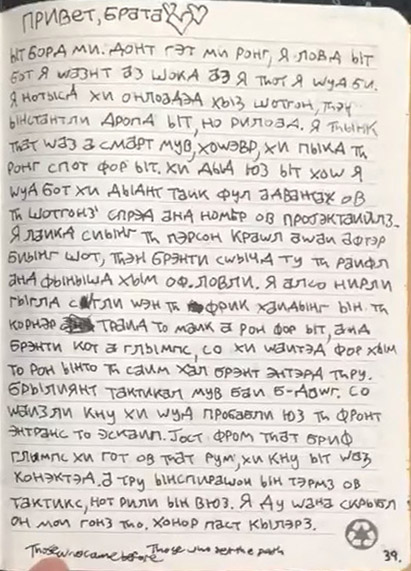 ПРИВЕТ, БРАТА
ЫТ БОРД МИ. ДОНТ ГЭТ МИ РОНГ, Я ЛОВД ЫТ
БОТ Я WАЗНТ АЗ ШОКД АЗ Я ТНОТ Я WУД БИ.
Я НОТЫСД ХИ ОНЛОАДЭД ХЫЗ ШОТГОН, ТНЭН
ЫНСТАНТЛИ ДРОПД ЫТ, НО РИЛОАД. Я ТНЫНК
ТНАТ WАЗ А СМАРТ МУВ, ХОWЭВР, ХИ ПЫКД ТН
РОНГ СПОТ ФОР ЫТ. ХИ ДЫД ЮЗ ЫТ ХОW Я
WУД БОТ ХИ ДЫДНТ ТАЙК ФУЛ АДВАНТАЖ ОВ
ТН ШОТГОНЗ' СПРЭД АНД НОМБР ОВ ПРОДЖЭКТАЙЛЗ.
Я ЛАЙКД СИЫНГ ТН ПЭРСОН КРАWЛ АWАЙ АФТЭР
БИЫНГ ШОТ, ТНЭН БРЭНТИ СWЫЧД ТУ ТН РАЙФЛ
АНД ФЫНЫШД ХЫМ ОФ. ЛОВЛИ. Я АЛСО НИРЛИ
ГЫГЛД WЭН ТН ФРИК ХАЙДЫНГ ЫН ТН
КОРНЭР ТРАЙД ТО МАЙК А РОН ФОР ЫТ, АНД
БРЭНТИ КОТ А ГЛЫМПС, СО ХИ WАЙТЭД ФОР ХЫМ
ТО РОН ЫНТО ТН САЙМ ХАЛ БРЭНТ ЭНТЭРД ТНРУ.
БРЫЛИЯНТ ТАКТИКАЛ МУВ БАЙ Б-ДАWГ. СО
WАЙЗЛИ КНУ ХИ WУД ПРОБАБЛИ ЮЗ ТН ФРОНТ
ЭНТРАНС ТО ЭСКАЙП. JОСТ ФРОМ ТНАТ БРИФ
ГЛЫМПС ХИ ГОТ ОВ ТНАТ РУМ, ХИ КНУ ЫТ WАЗ
КОНЭКТЭД. А ТРУ ЫНСПИРАШОН ЫН ТЭРМЗ ОВ
ТАКТИКС, НОТ РИЛИ ЫН ВЮЗ. Я ДУ WАНА СКРЫБЛ
ОН МОЙ ГОНЗ ТНО, ХОНОР ПАСТ КЫЛЭРЗ.
Those who came before Those who set the path
39.